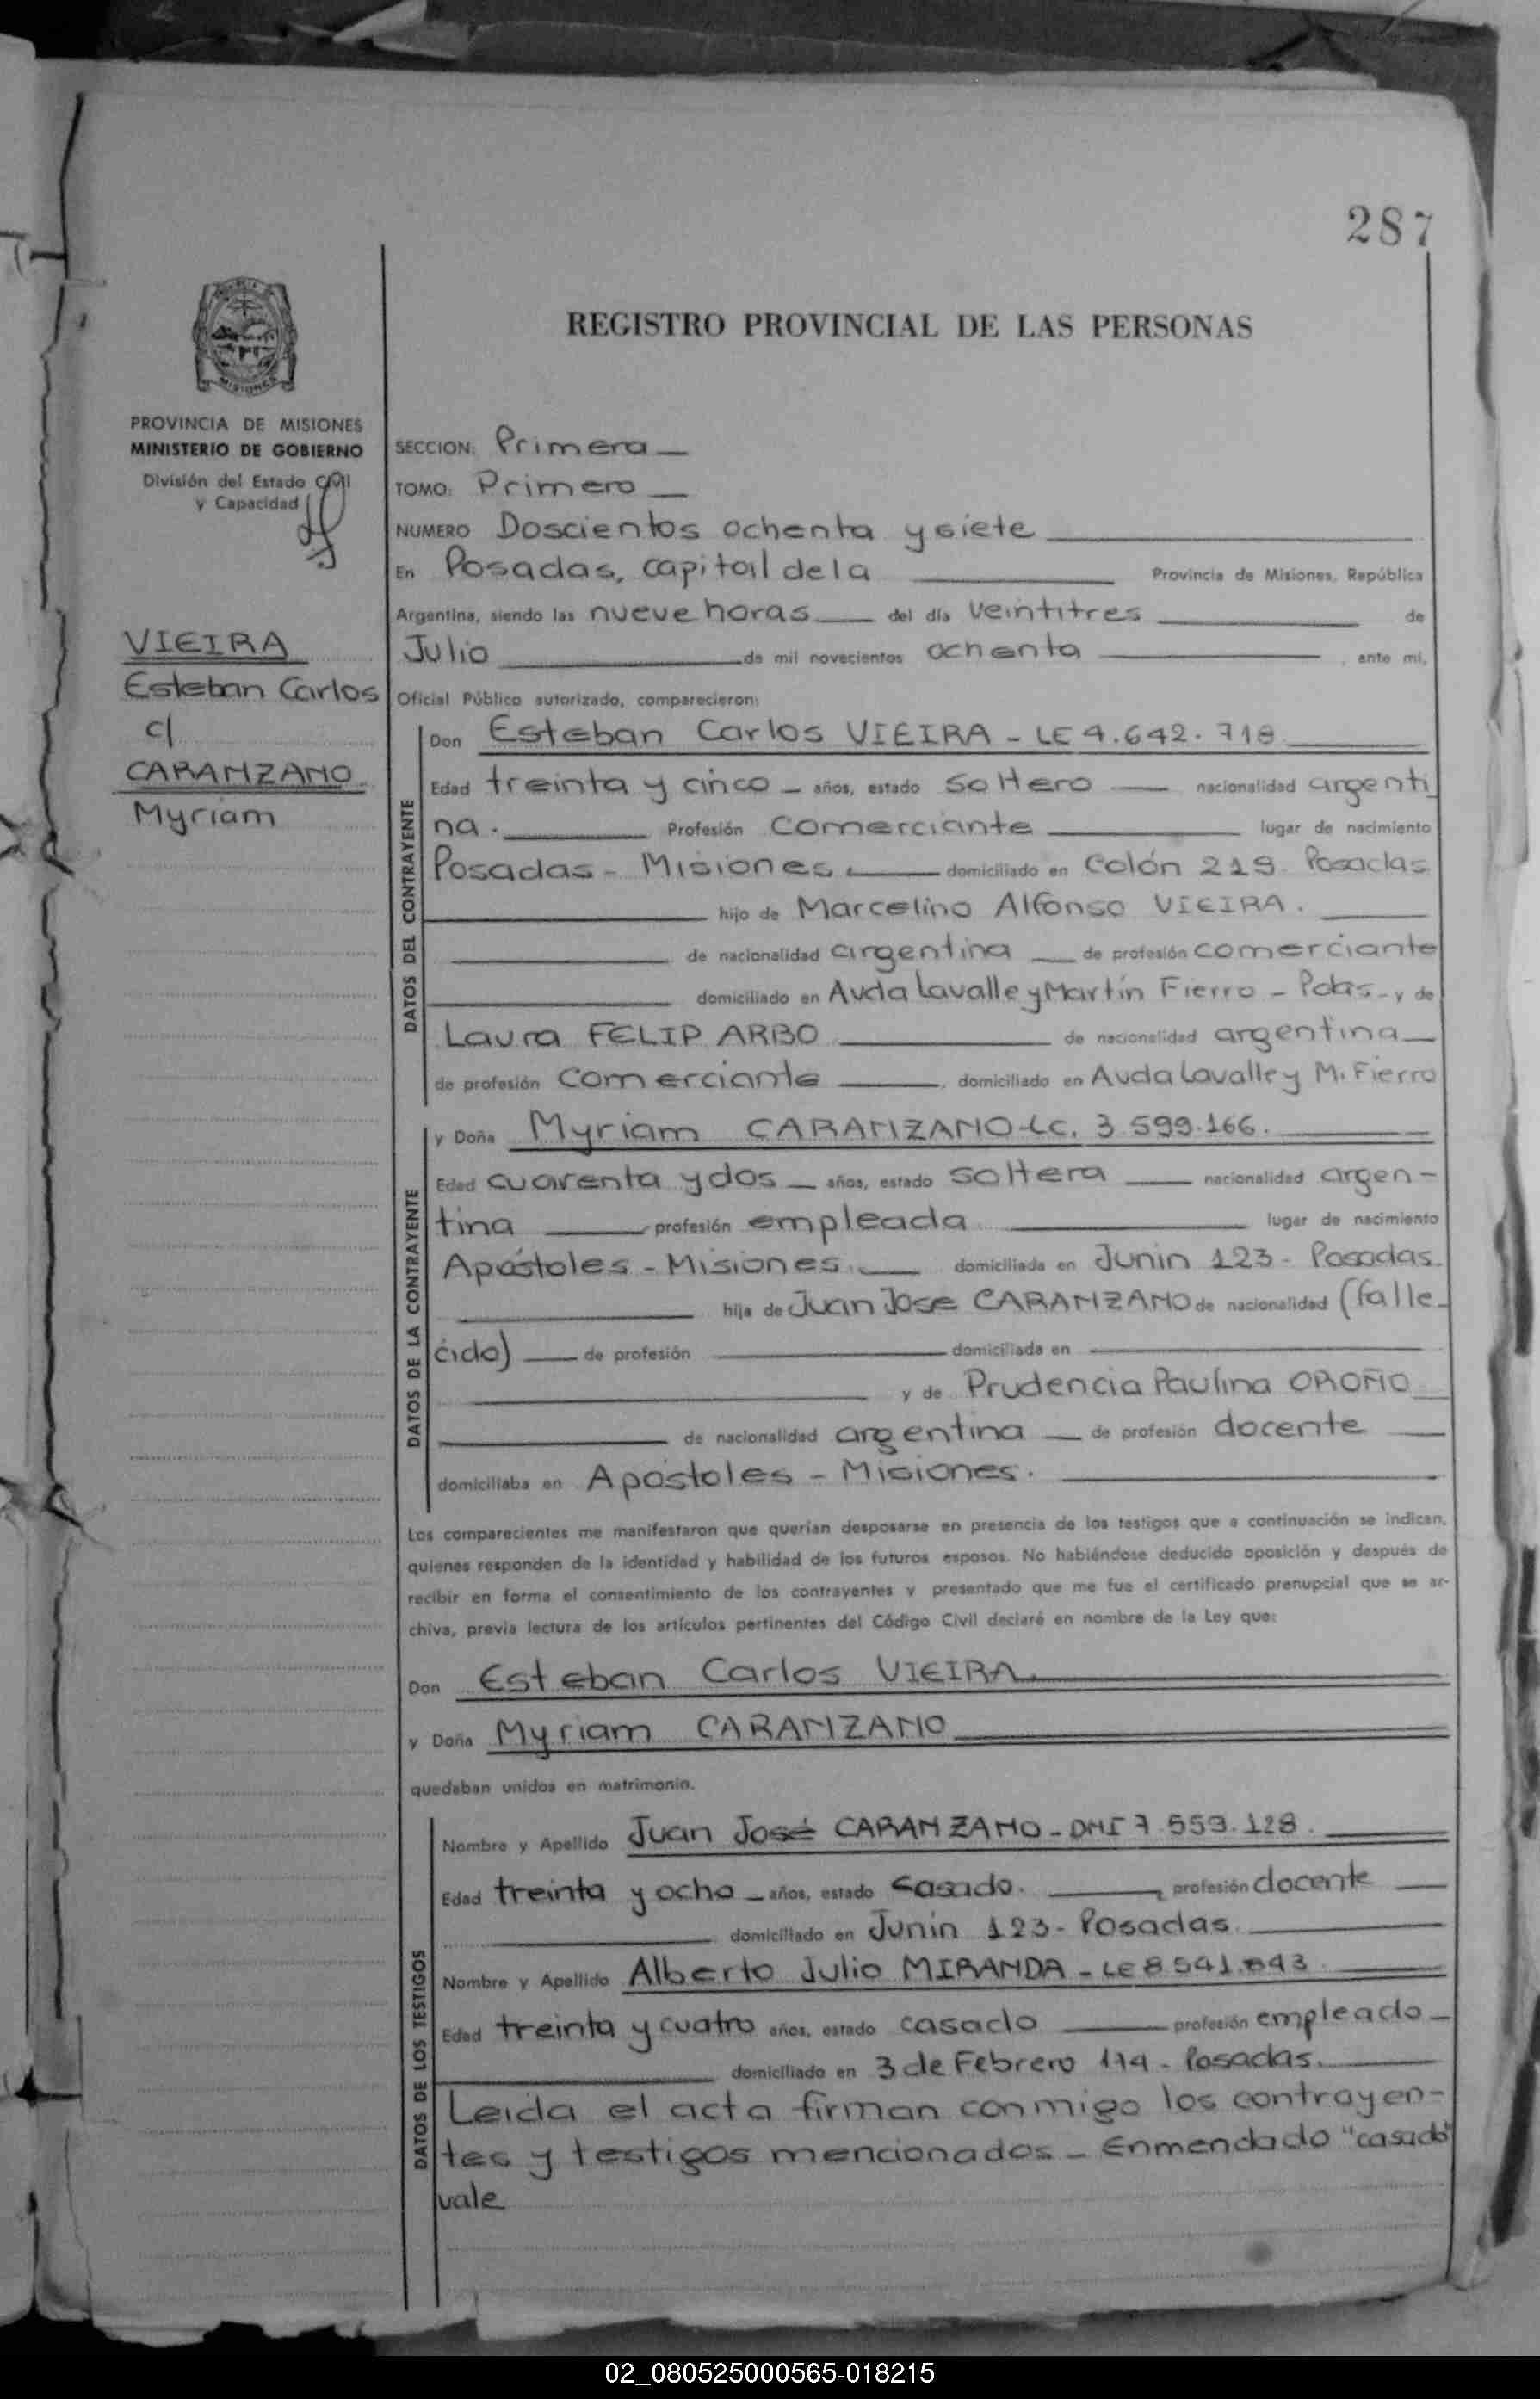 287
REGISTRO PROVINCIAL DE LAS PERSONAS
MISIONES
PROVINCIA DE MISIONES
MINISTERIO DE GOBIERNO
División del Estado Civil
y Capacidad
VIEIRA
Esteban Carlos
c/
CARANZANO
Myriam
SECCION: Primera
TOMO: Primero
NUMERO Doscientos ochenta y siete
En Posadas, capital de la Provincia de Misiones, República
Argentina, siendo las nueve horas del día veintitres de
Julio de mil novecientos ochenta, ante mi,
Oficial Público autorizado, comparecieron:
DATOS DEL CONTRAYENTE
Don Esteban Carlos VIEIRA - LE 4.642.718
Edad treinta y cinco años, estado soltero nacionalidad argenti
na. Profesión Comerciante lugar de nacimiento
Posadas - Misiones domiciliado en Colón 219. Posadas
hijo de Marcelino Alfonso VIEIRA.
de nacionalidad argentina de profesión comerciante
domiciliado en Avda Lavalle y Martín Fierro - Pdas - y de
Laura FELIP ARBO de nacionalidad argentina
de profesión comerciante, domiciliado en Avda Lavalle y M. Fierro
DATOS DE LA CONTRAYENTE
y Doña Myriam CARANZANO - LC. 3.599.166.
Edad cuarenta y dos años, estado soltera nacionalidad argen-
tina profesión empleada lugar de nacimiento
Apóstoles - Misiones. domiciliada en Junin 123 - Posadas.
hija de Juan Jose CARANZANO de nacionalidad (falle-
cido) de profesión domiciliada en
y de Prudencia Paulina OROÑO
de nacionalidad argentina de profesión docente
domiciliaba en Apóstoles - Misiones.
Los comparecientes me manifestaron que querían desposarse en presencia de los testigos que a continuación se indican,
quienes responden de la identidad y habilidad de los futuros esposos. No habiéndose deducido oposición y después de
recibir en forma el consentimiento de los contrayentes y presentado que me fue el certificado prenupcial que se ar-
chiva, previa lectura de los artículos pertinentes del Código Civil declaré en nombre de la Ley que:
Don Esteban Carlos VIEIRA
y Doña Myriam CARANZANO
quedaban unidos en matrimonio.
DATOS DE LOS TESTIGOS
Nombre y Apellido Juan José CARANZANO - DNI 7.559.128.
Edad treinta y ocho años, estado casado. profesión docente
domiciliado en Junin 123 - Posadas.
Nombre y Apellido Alberto Julio MIRANDA - LE 8.541.843
Edad treinta y cuatro años, estado casado profesión empleado
domiciliado en 3 de Febrero 114 - Posadas.
Leida el acta firman conmigo los contrayen-
tes y testigos mencionados - Enmendado "casado"
vale
02_080525000565-018215